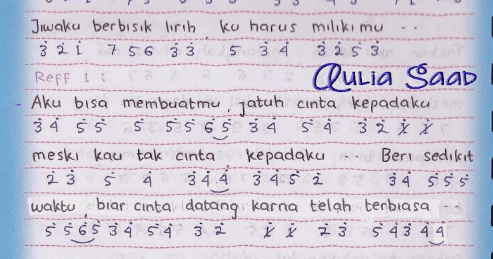 Jiwaku berbisik lirih, ku harus miliki mu - -
3̇ 2̇ 1̇ 7 5 6 3̇ 3̇ 5 3̇ 4̇ 3̇ 2̇ 5 3̇
Reff 1 :
Qulia Saad
- Aku bisa membuatmu, jatuh cinta kepadaku
3̇ 4̇ 5̇ 5̇ 5̇ 5̇ 5̇ 6̇ 5̇ 3̇ 4̇ 5̇ 4̇ 3̇ 2̇ 1̇ 1̇
meski kau tak cinta kepadaku - - Beri sedikit
2̇ 3̇ 5̇ 4̇ 3̇ 4̇ 4̇ 3̇ 4̇ 5̇ 2̇ 3̇ 4̇ 5̇ 5̇ 5̇
waktu, biar cinta datang karna telah terbiasa - -
5̇ 5̇ 6̇ 5̇ 3̇ 4̇ 5̇ 4̇ 3̇ 2̇ 1̇ 1̇ 2̇ 3̇ 5̇ 4̇ 3̇ 4̇ 4̇